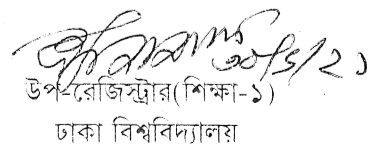 ৩০/৬/২১
উপ-রেজিস্ট্রার(শিক্ষা-১)
ঢাকা বিশ্ববিদ্যালয়